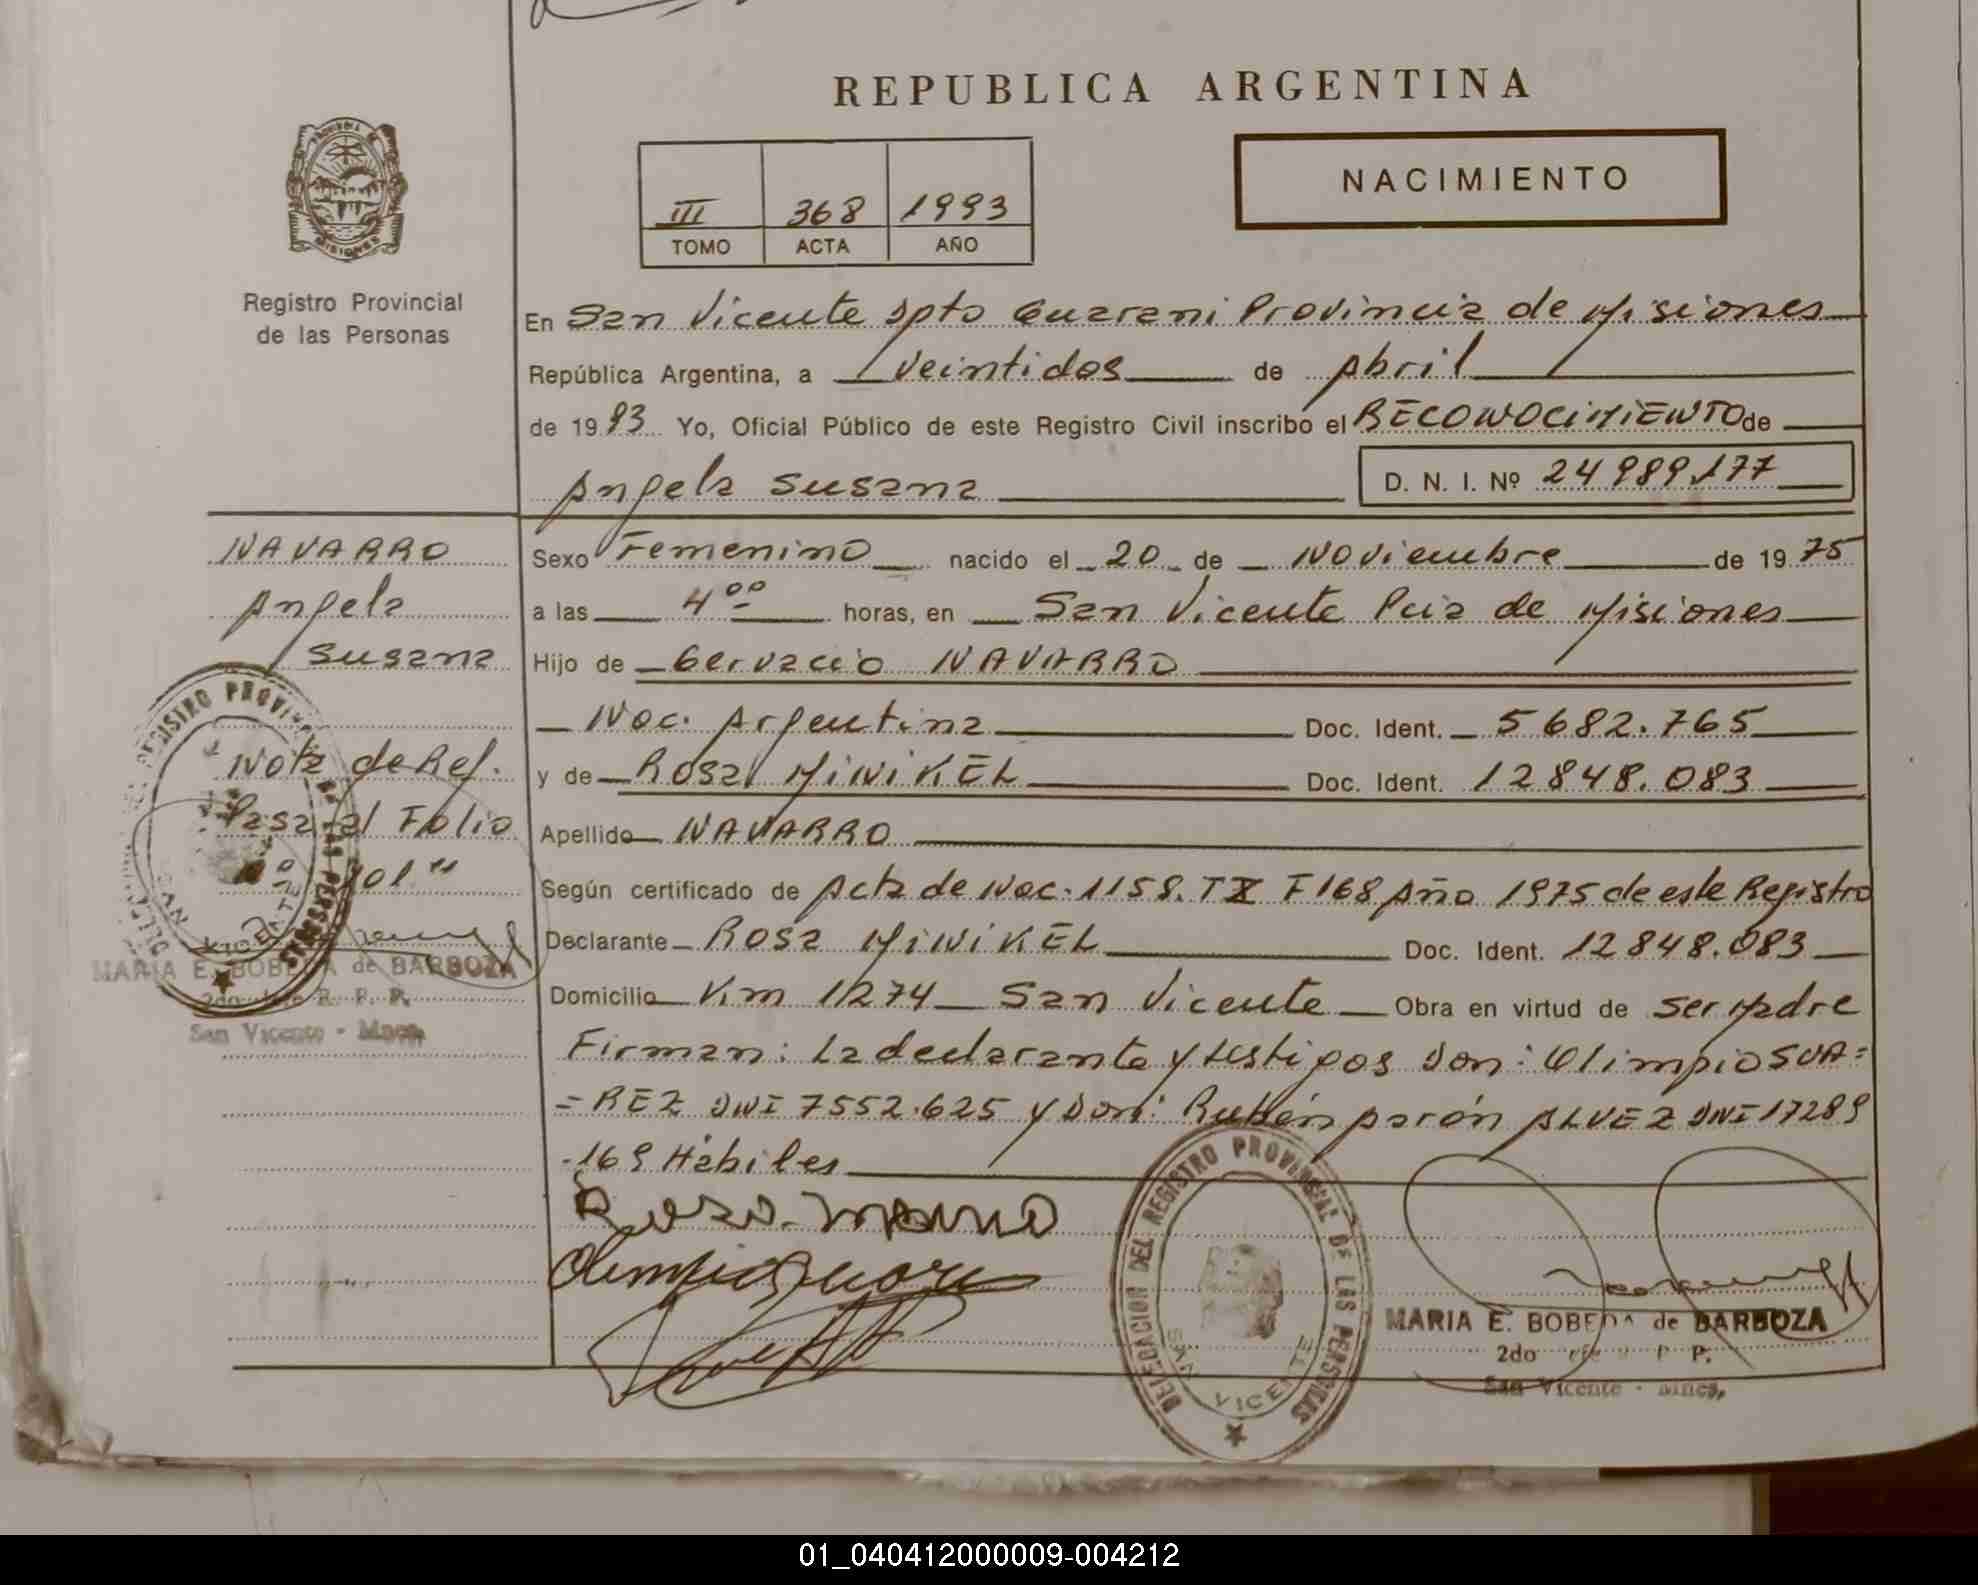 REPUBLICA ARGENTINA
NACIMIENTO
III 368 1993
TOMO ACTA AÑO
PROVINCIA DE MISIONES
Registro Provincial
de las Personas
En San Vicente Dpto Guarani Provincia de Misiones
República Argentina, a veintidos de Abril
de 1993 Yo, Oficial Público de este Registro Civil inscribo el RECONOCIMIENTO de
Angela Susana D. N. I. Nº 24989.177
NAVARRO
Angela
Susana
Sexo Femenino nacido el 20 de Noviembre de 1975
a las 4°° horas, en San Vicente Pcia de Misiones
Hijo de Gervacio NAVARRO
Nac. Argentina Doc. Ident. 5682.765
y de Rosa MINIKEL Doc. Ident. 12848.083
Apellido NAVARRO
Según certificado de Acta de Nac. 1158. F168 Año 1975 de este Registro
Declarante Rosa MINIKEL Doc. Ident. 12848.083
Domicilio Km 1274 San Vicente Obra en virtud de ser Madre
Firman: La declarante y testigos Don: Olimpio SUA=
=REZ DNI 7552.625 y Don: Rubén ALVEZ DNI 17289
.169 Hábiles
Nota de Ref.
Pasa al Folio
Nº 101"
MARIA E. BOBEDA de BARBOZA
2do Jefe R. P. P.
San Vicente - Mnes.
DELEGACION DEL REGISTRO PROVINCIAL DE LAS PERSONAS
SAN VICENTE
DELEGACION DEL REGISTRO PROVINCIAL DE LAS PERSONAS
SAN VICENTE
MARIA E. BOBEDA de BARBOZA
2do Jefe R. P. P.
San Vicente - Mnes.
01_040412000009-004212